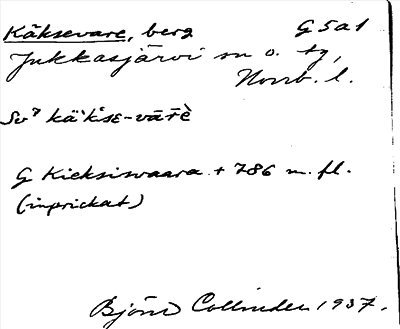 Käksevare, berg G 5 a 1
Jukkasjärvi sn o. tg,
Norrb. l.
kä`k̀sε-vārè
G Kieksivaara + 786 m. fl.
(inprickat)
Björn Collinder 1937.